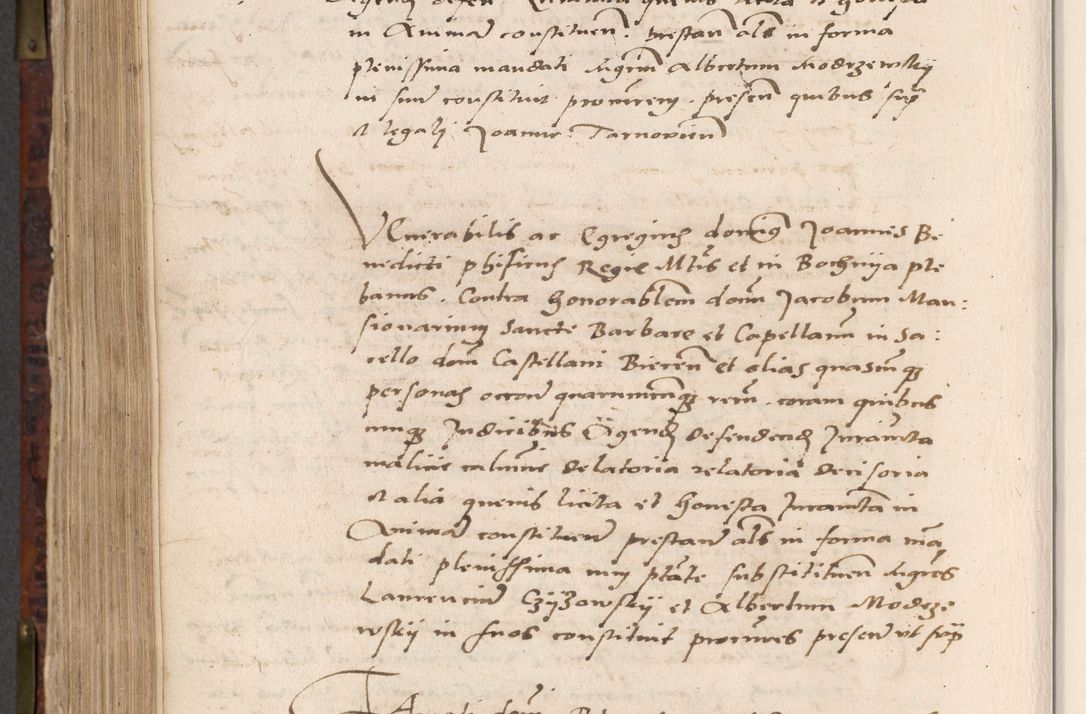 in Animā constituen. prestan als in forma
plenissima mandati dignū Albertum Modrzewsky
in suū constituit procurem. presen quibus sup
et legali Joanne Tarnowien
Venerabilis ac Egregius dominus Joannes Be
nedicti phisicus Regie Mtis et in Bochnya ple
banus. Contra honorablem dom Jacobum Man:
sionarium Sancte Barbare et Capellanū in Sa:
cello dom Castellani Biecen et alias quascūq
personas occone quarumcunq rerū. coram quibus
cunq Judicibus Agend defendend Juramta
malicie calumnie delatoria relatoria decisoria
et alia quevis licita et honesta Juramta in
Animā constituen prestan als in forma mā
dati plenissima cum ptāte substituen dignos
Laurenciū Czyżowsky et Albertum Modrze
wsky in suos constituit procures presen ut sup